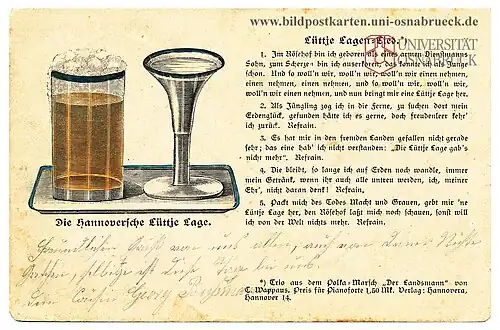 www.bildpostkarten.uni-osnabrueck.de
Lüttje Lagen-Lied.*)
UNIVERSITÄT
OSNABRÜCK
1. Im Rösehof bin ich geboren als eines armen Dienstmanns
Sohn, zum Scherze bin ich auserkoren, das konnte ich als Junge
schon. Und so woll'n wir, woll'n wir, woll'n wir einen nehmen,
einen nehmen, einen nehmen, und so woll'n wir, woll'n wir,
woll'n wir einen nehmen, und nun bringt mir eine Lüttje Lage her.
2. Als Jüngling zog ich in die Ferne, zu suchen dort mein
Erdenglück, gefunden hätte ich es gerne, doch freudenleer kehr'
ich zurück. Refrain.
3. Es hat mir in den fremden Landen gefallen nicht gerade
sehr; das eine hab' ich nicht verstanden: „Die Lüttje Lage gab's
nicht mehr". Refrain.
4. Die bleibt, so lange ich auf Erden noch wandle, immer
mein Getränk, wenn ihr auch alle untreu werden, ich, meiner
Ehr', nicht daran denk! Refrain.
5. Packt mich des Todes Macht und Grauen, gebt mir 'ne
Lüttje Lage her, den Rösehof laßt mich noch schauen, sonst will
ich von der Welt nichts mehr. Refrain.
Die Hannoversche Lüttje Lage.
*) Trio aus dem Polka-Marsch „Der Landsmann" von
C. Wappaus. Preis für Pianoforte 1,50 Mk. Verlag: Hannovera,
Hannover 14.
Georg